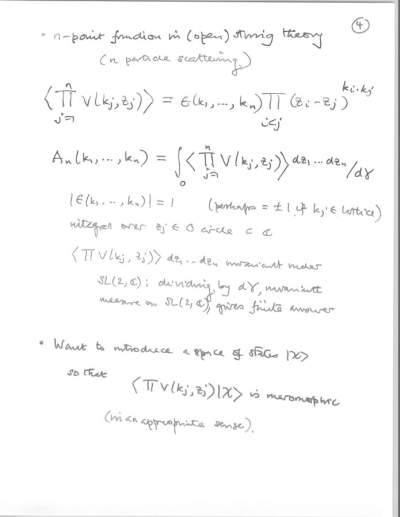 ④
• n-point function in (open) string theory
(n particle scattering)
⟨∏_{j=1}^{n} V(k_j, z_j)⟩ = ϵ(k_1, ..., k_n) ∏_{i<j} (z_i - z_j)^{k_i·k_j}
A_n(k_1, ..., k_n) = ∫_0 ⟨∏_{j=1}^{n} V(k_j, z_j)⟩ dz_1 ... dz_n / dγ
|ϵ(k_1, ..., k_n)| = 1 (perhaps = ±1 if k_j ∈ lattice)
integral over z_j ∈ O circle ⊂ ℂ
⟨∏ V(k_j, z_j)⟩ dz_1 ... dz_n invariant under
SL(2, ℂ); dividing by dγ, invariant
measure on SL(2, ℂ), gives finite answer
• Want to introduce a space of states |χ⟩
so that
⟨∏ V(k_j, z_j)|χ⟩ is meromorphic
(in an appropriate sense).